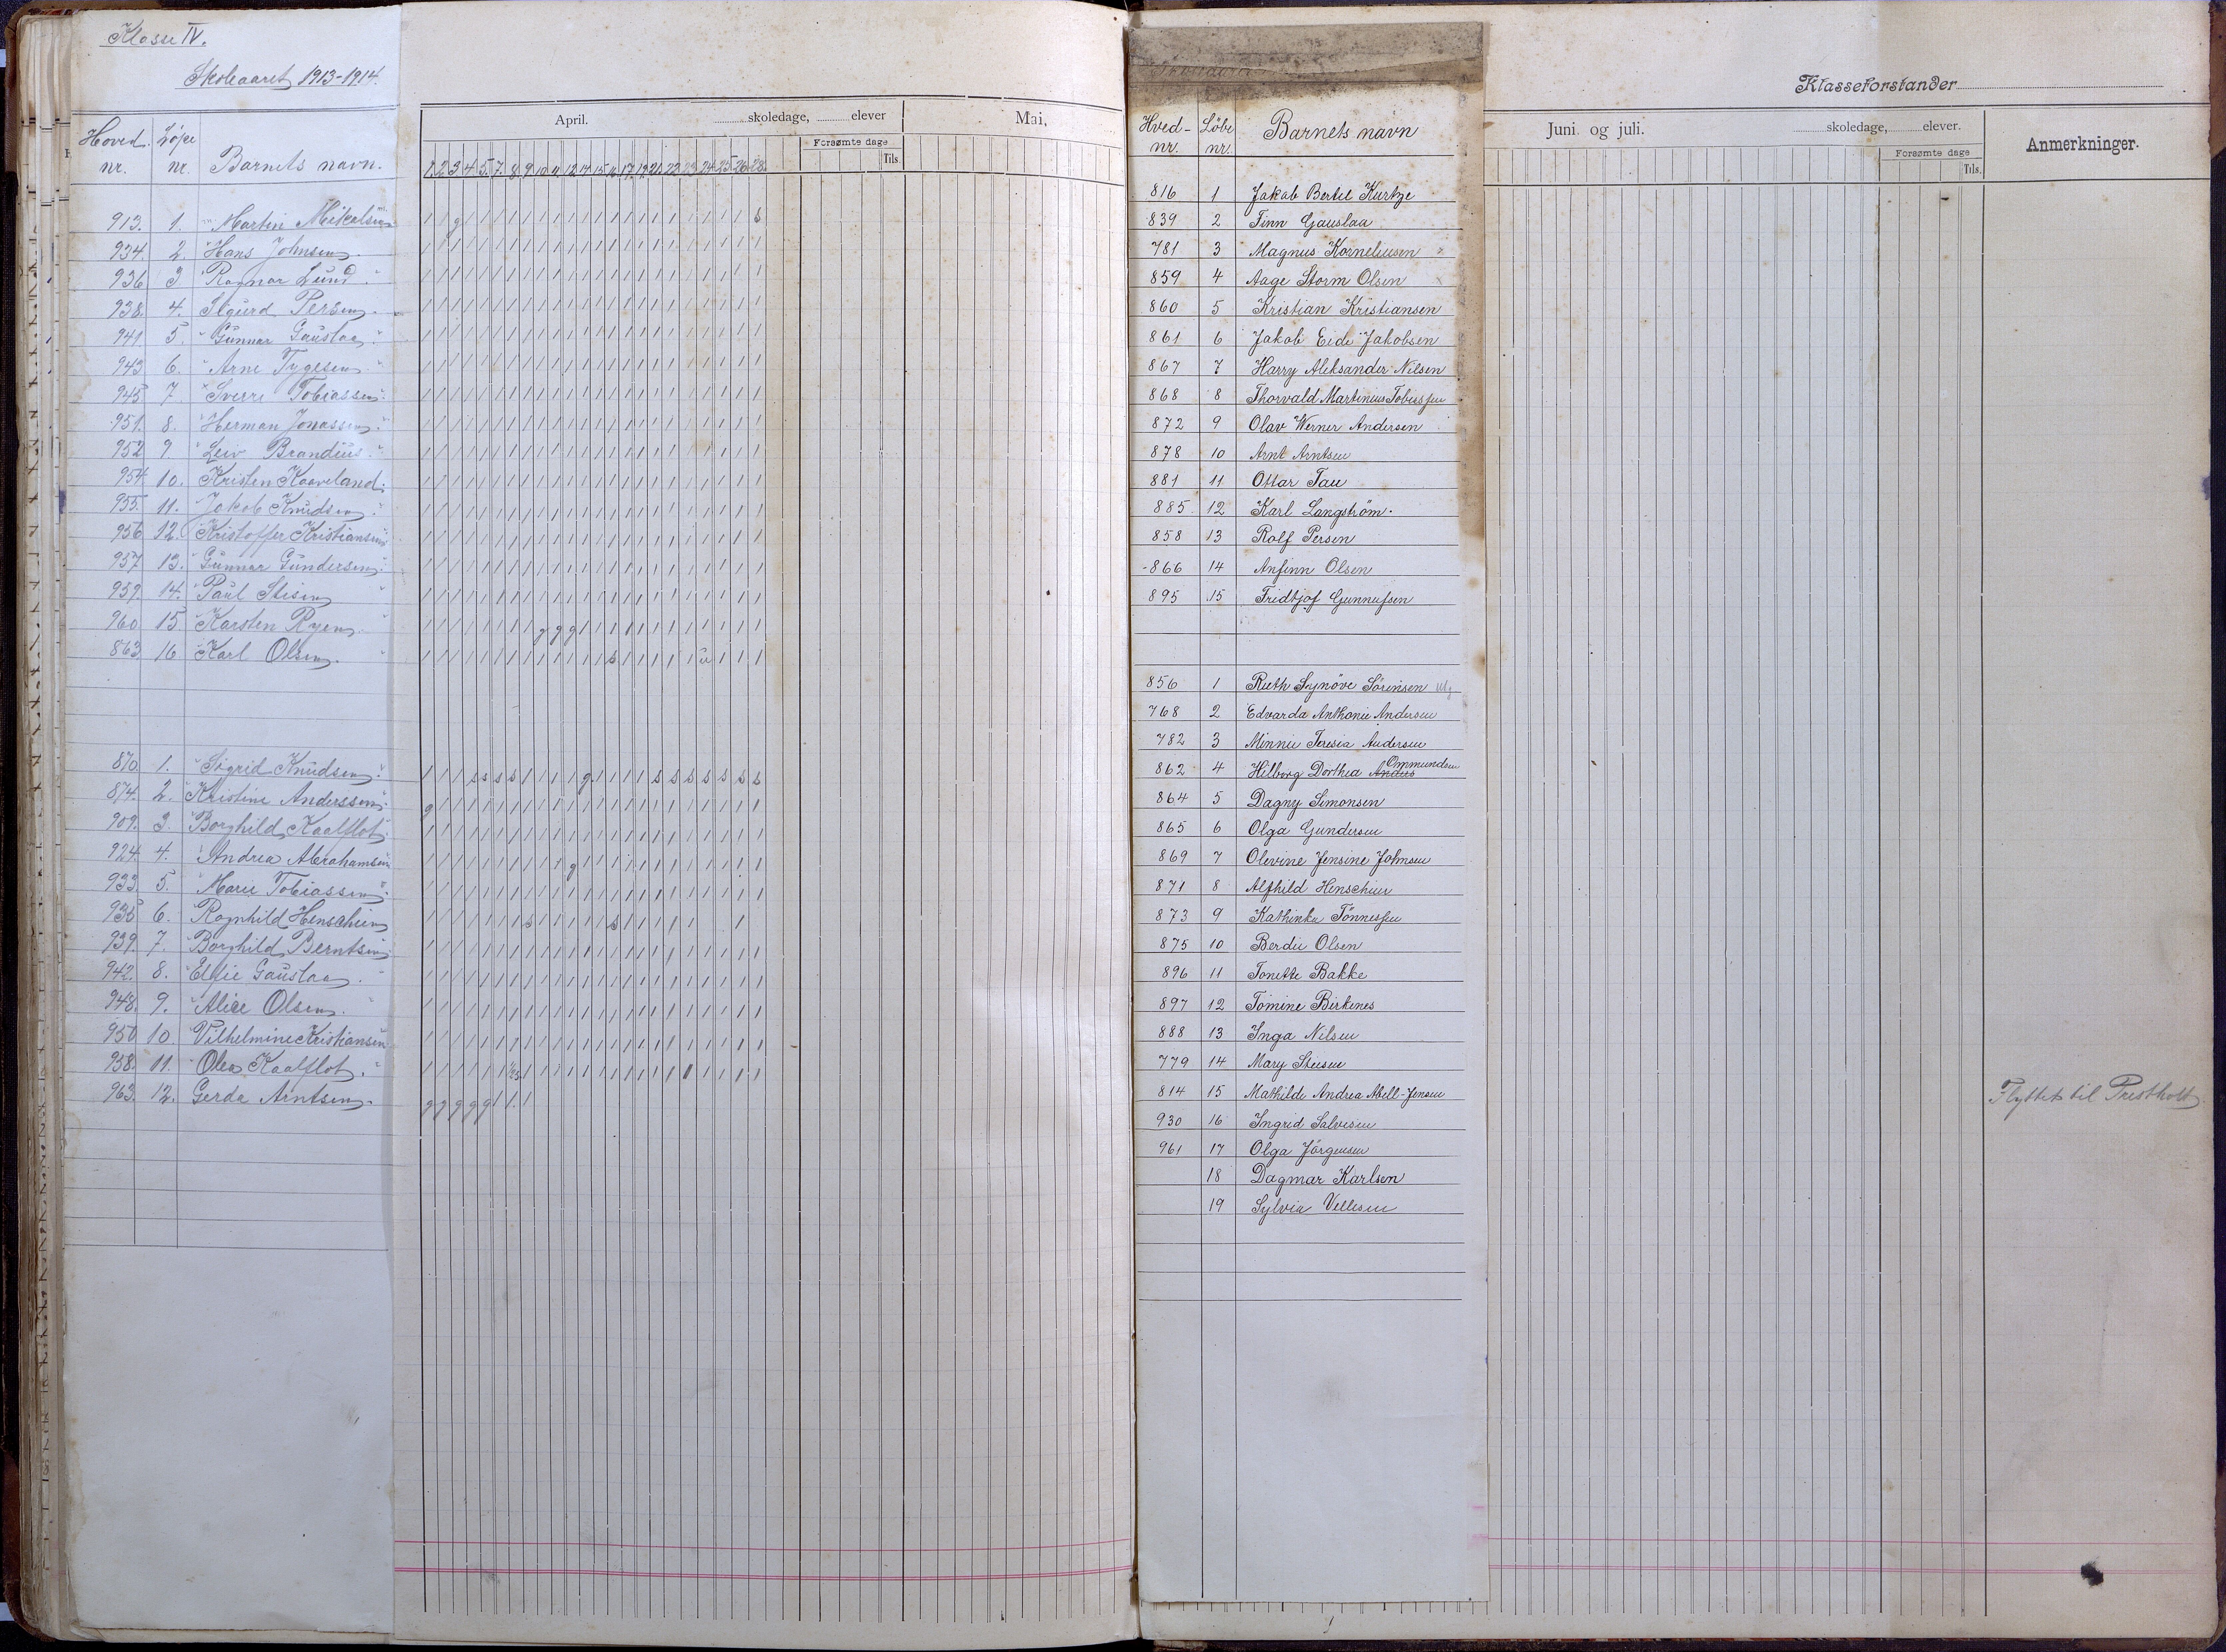 Klasse IV.
Skoleaaret 1913-1914.
Hoved nr. Løpe nr. Barnets navn.
April. skoledage, elever Mai.
Forsømte dage
Tils.
1. 2. 3. 4. 5. 7. 8. 9. 10. 11. 12. 14. 15. 16. 17. 19. 21. 22. 23. 24. 25. 26. 28.
913. 1. Martin Mikalsen
934. 2. Hans Johnsen
936 3 Ragnar Lund
938. 4. Sigurd Persen
941 5. Gunnar Gauslaa
943 6. Arne Tygesen
945 7. Sverre Tobiassen
951. 8. Herman Jonassen
952 9. Leiv Brandius
954 10. Kristen Kaaveland
955. 11. Jakob Knudsen
956 12. Kristoffer Kristiansen
957 13. Gunnar Gundersen
959. 14. Paul Stisen
960. 15 Karsten Ryen
863. 16 Karl Olsen
870. 1. Sigrid Knudsen
874. 2. Kristine Anderssen
909. 3. Borghild Kaalflot
924. 4. Andrea Abrahamsen
933 5. Marie Tobiassen
935 6. Ragnhild Henschien
939. 7. Borghild Berntsen
942. 8. Ellie Gauslaa
948. 9. Alice Olsen
950 10. Vilhelmine Kristiansen
958. 11. Olea Kaalflot
963. 12. Gerda Arntsen
Hved-nr. Löbe nr. Barnets navn
816 1 Jakob Bertel Kurtze
839 2 Finn Gauslaa
781 3 Magnus Korneliusen
859 4 Aage Storm Olsen
860 5 Kristian Kristiansen
861 6 Jakob Eide Jakobsen
867 7 Harry Aleksander Nilsen
868 8 Thorvald Martinius Tobiassen
872 9 Olav Werner Andersen
878 10 Arnt Arntsen
881 11 Ottar Tau
885 12 Karl Langström.
858 13 Rolf Persen
866 14 Anfinn Olsen
895 15 Fridtjof Gunnufsen
856 1 Ruth Synöve Sörensen
768 2 Edvarda Anthonie Andersen
782 3 Minnie Teresia Andersen
862 4 Hilborg Dorthea Andus Ommundsen
864 5 Dagny Simonsen
865 6 Olga Gundersen
869 7 Olevine Jensine Johnsen
871 8 Alfhild Henschien
873 9 Kathinka Tönnessen
875 10 Berdie Olsen
896 11 Tonette Bakke
897 12 Tomine Birkenes
888 13 Inga Nilsen
779 14 Mary Stiesen
814 15 Mathilde Andrea Abell-Jensen
930 16 Ingrid Salvesen
961 17 Olga Jörgensen
18 Dagmar Karlsen
19 Sylvia Vellesen
Klasseforstander
Juni og juli. skoledage, elever.
Forsømte dage
Tils.
Anmerkninger.
Flyttet til Prestholt